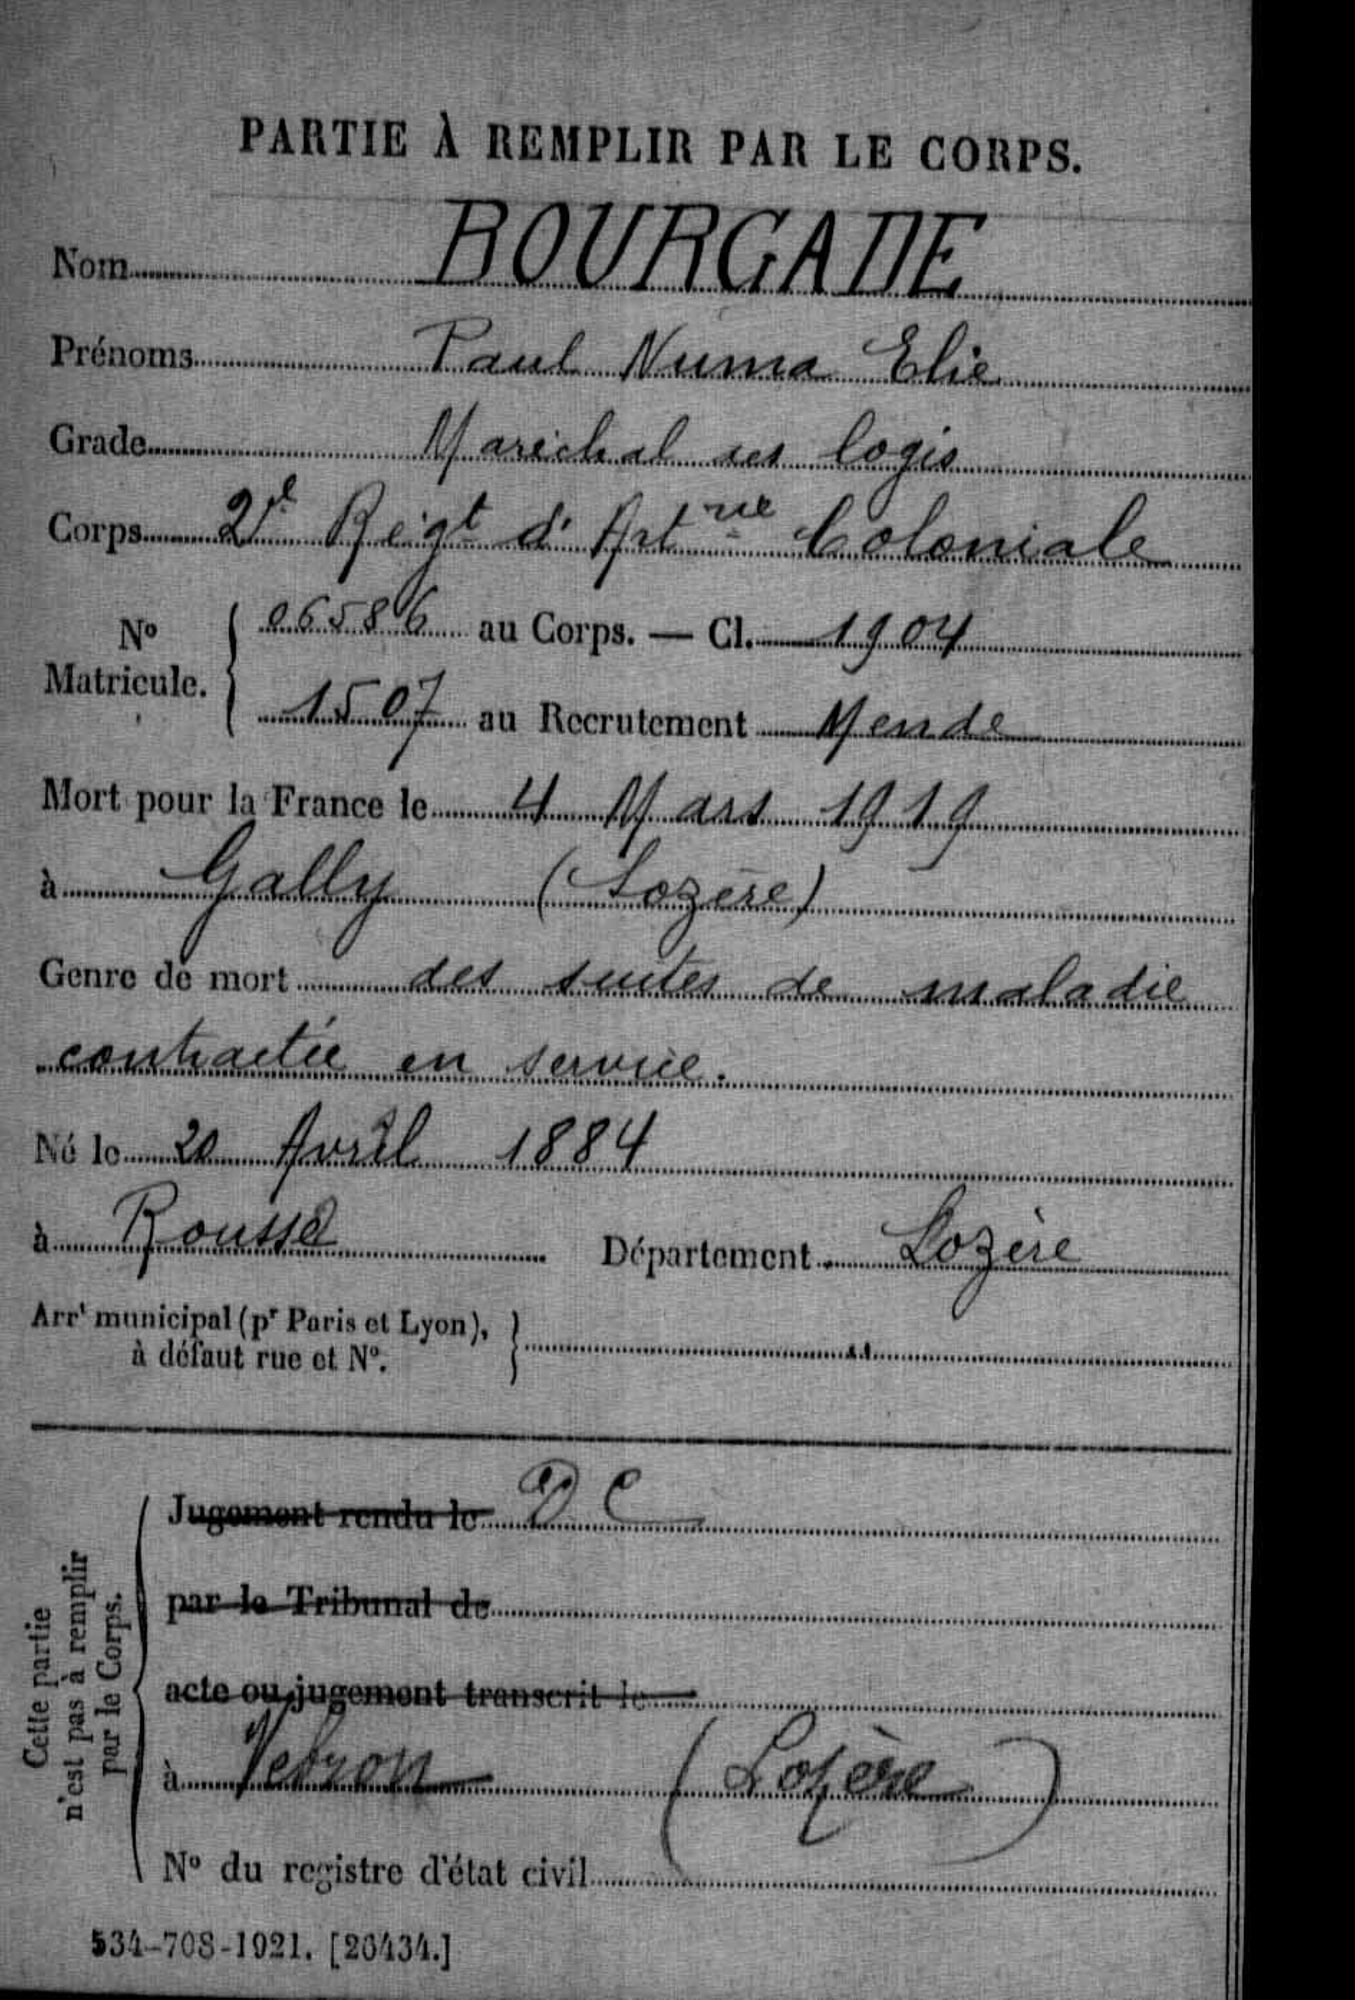 PARTIE À REMPLIR PAR LE CORPS.
Nom BOURGADE
Prénoms Paul Numa Elie
Grade Maréchal des logis
Corps 2e Régt d'Artrie Coloniale
No Matricule. { 06586 au Corps. — Cl. 1904
1507 au Recrutement Mende
Mort pour la France le 4 Mars 1919
à Gally (Lozère)
Genre de mort des suites de maladie
contractée en service.
Né le 20 Avril 1884
à Rousse Département Lozère
Arrt municipal (pr Paris et Lyon),
à défaut rue et No. } "
Cette partie
n'est pas à remplir
par le Corps.
Jugement rendu le D C
par le Tribunal de
acte ou jugement transcrit le
à Vebron (Lozère)
No du registre d'état civil
534-708-1921. [26434.]